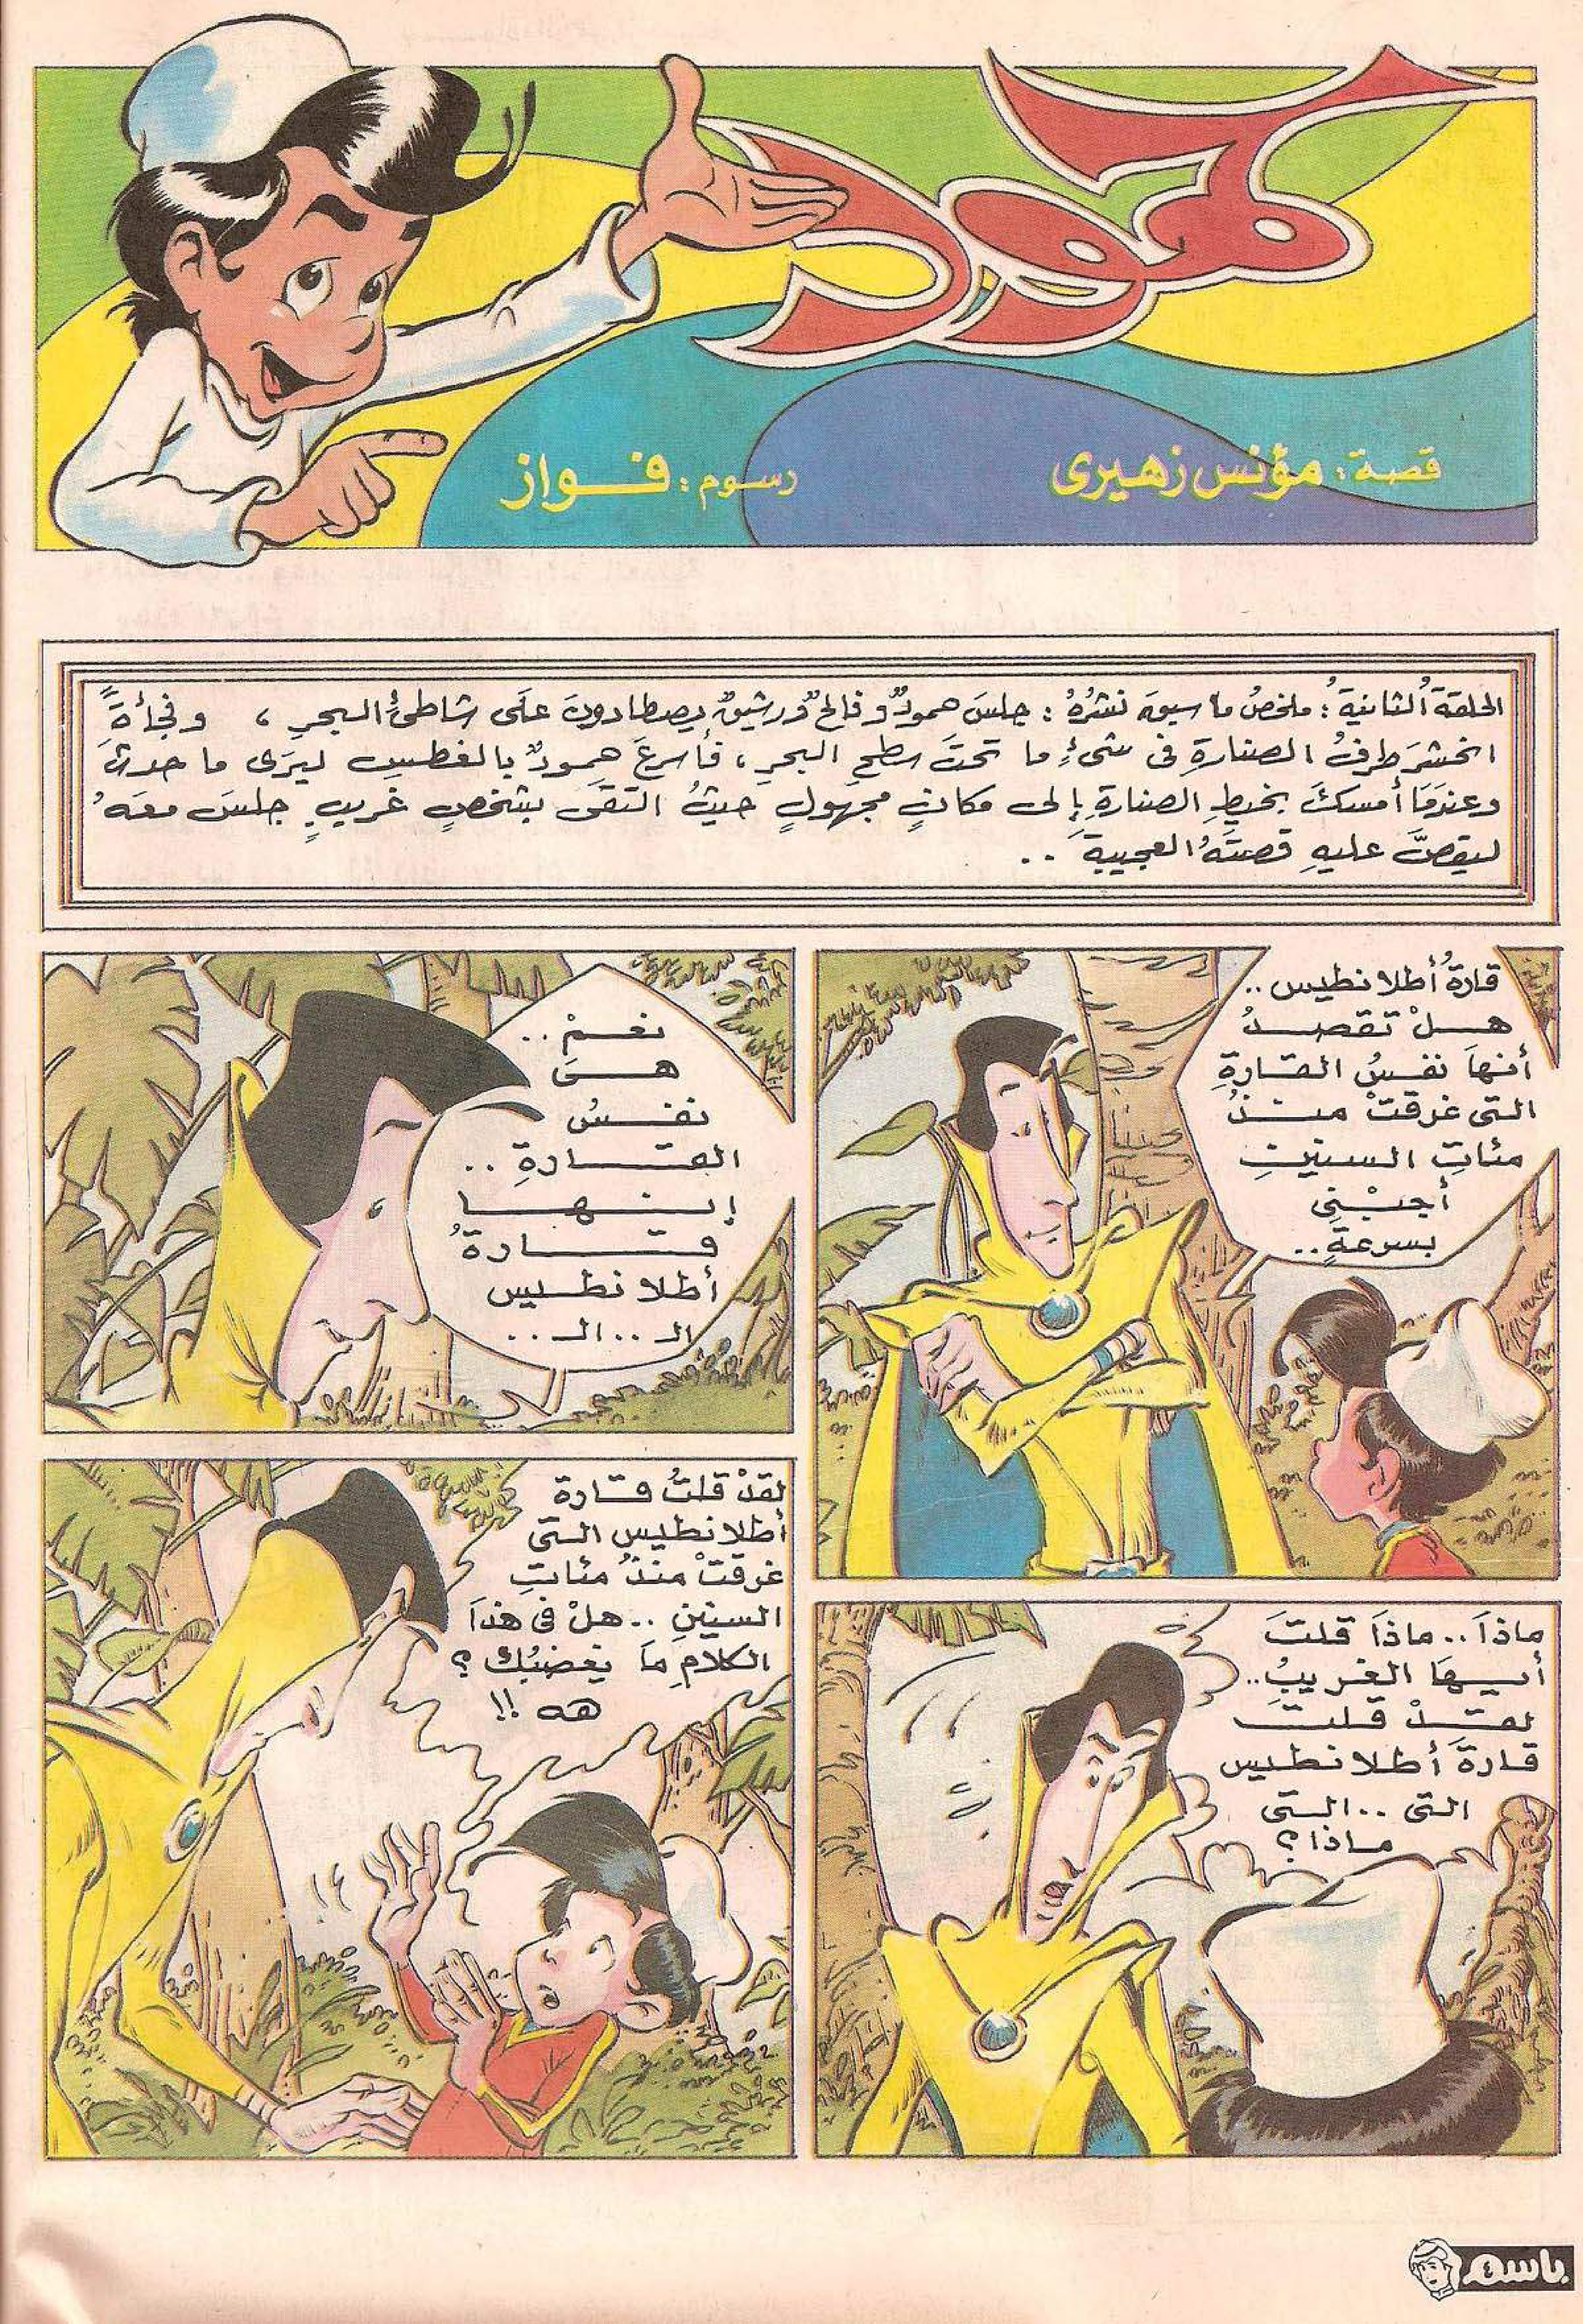 حمود
قصة: مؤنس زهيرى
رسوم: فواز
الحلقة الثانية: ملخص ما سبق نشره: جلس حمود وفالح ورشيق يصطادون على شاطئ البحر، وفجأة
انحشر طرف الصنارة فى شئ ما تحت سطح البحر، فأسرع حمود بالغطس ليرى ما حدث
وعندما أمسك بخيط الصنارة إلى مكان مجهول حيث التقى بشخص غريب جلس معه
ليقص عليه قصته العجيبة ..
قارة أطلانطيس ..
هل تقصد
أنها نفس القارة
التى غرقت منذ
مئات السنين
أجبنى
بسرعة ..
نعم ..
هى
نفس
القارة ..
إنها
قارة
أطلانطيس
الـ .. الـ ..
ماذا .. ماذا قلت
أيها الغريب ..
لقد قلت
قارة أطلانطيس
التى .. التى
ماذا؟
لقد قلت قارة
أطلانطيس التى
غرقت منذ مئات
السنين .. هل فى هذا
الكلام ما يغضبك؟
هه !!
باسم